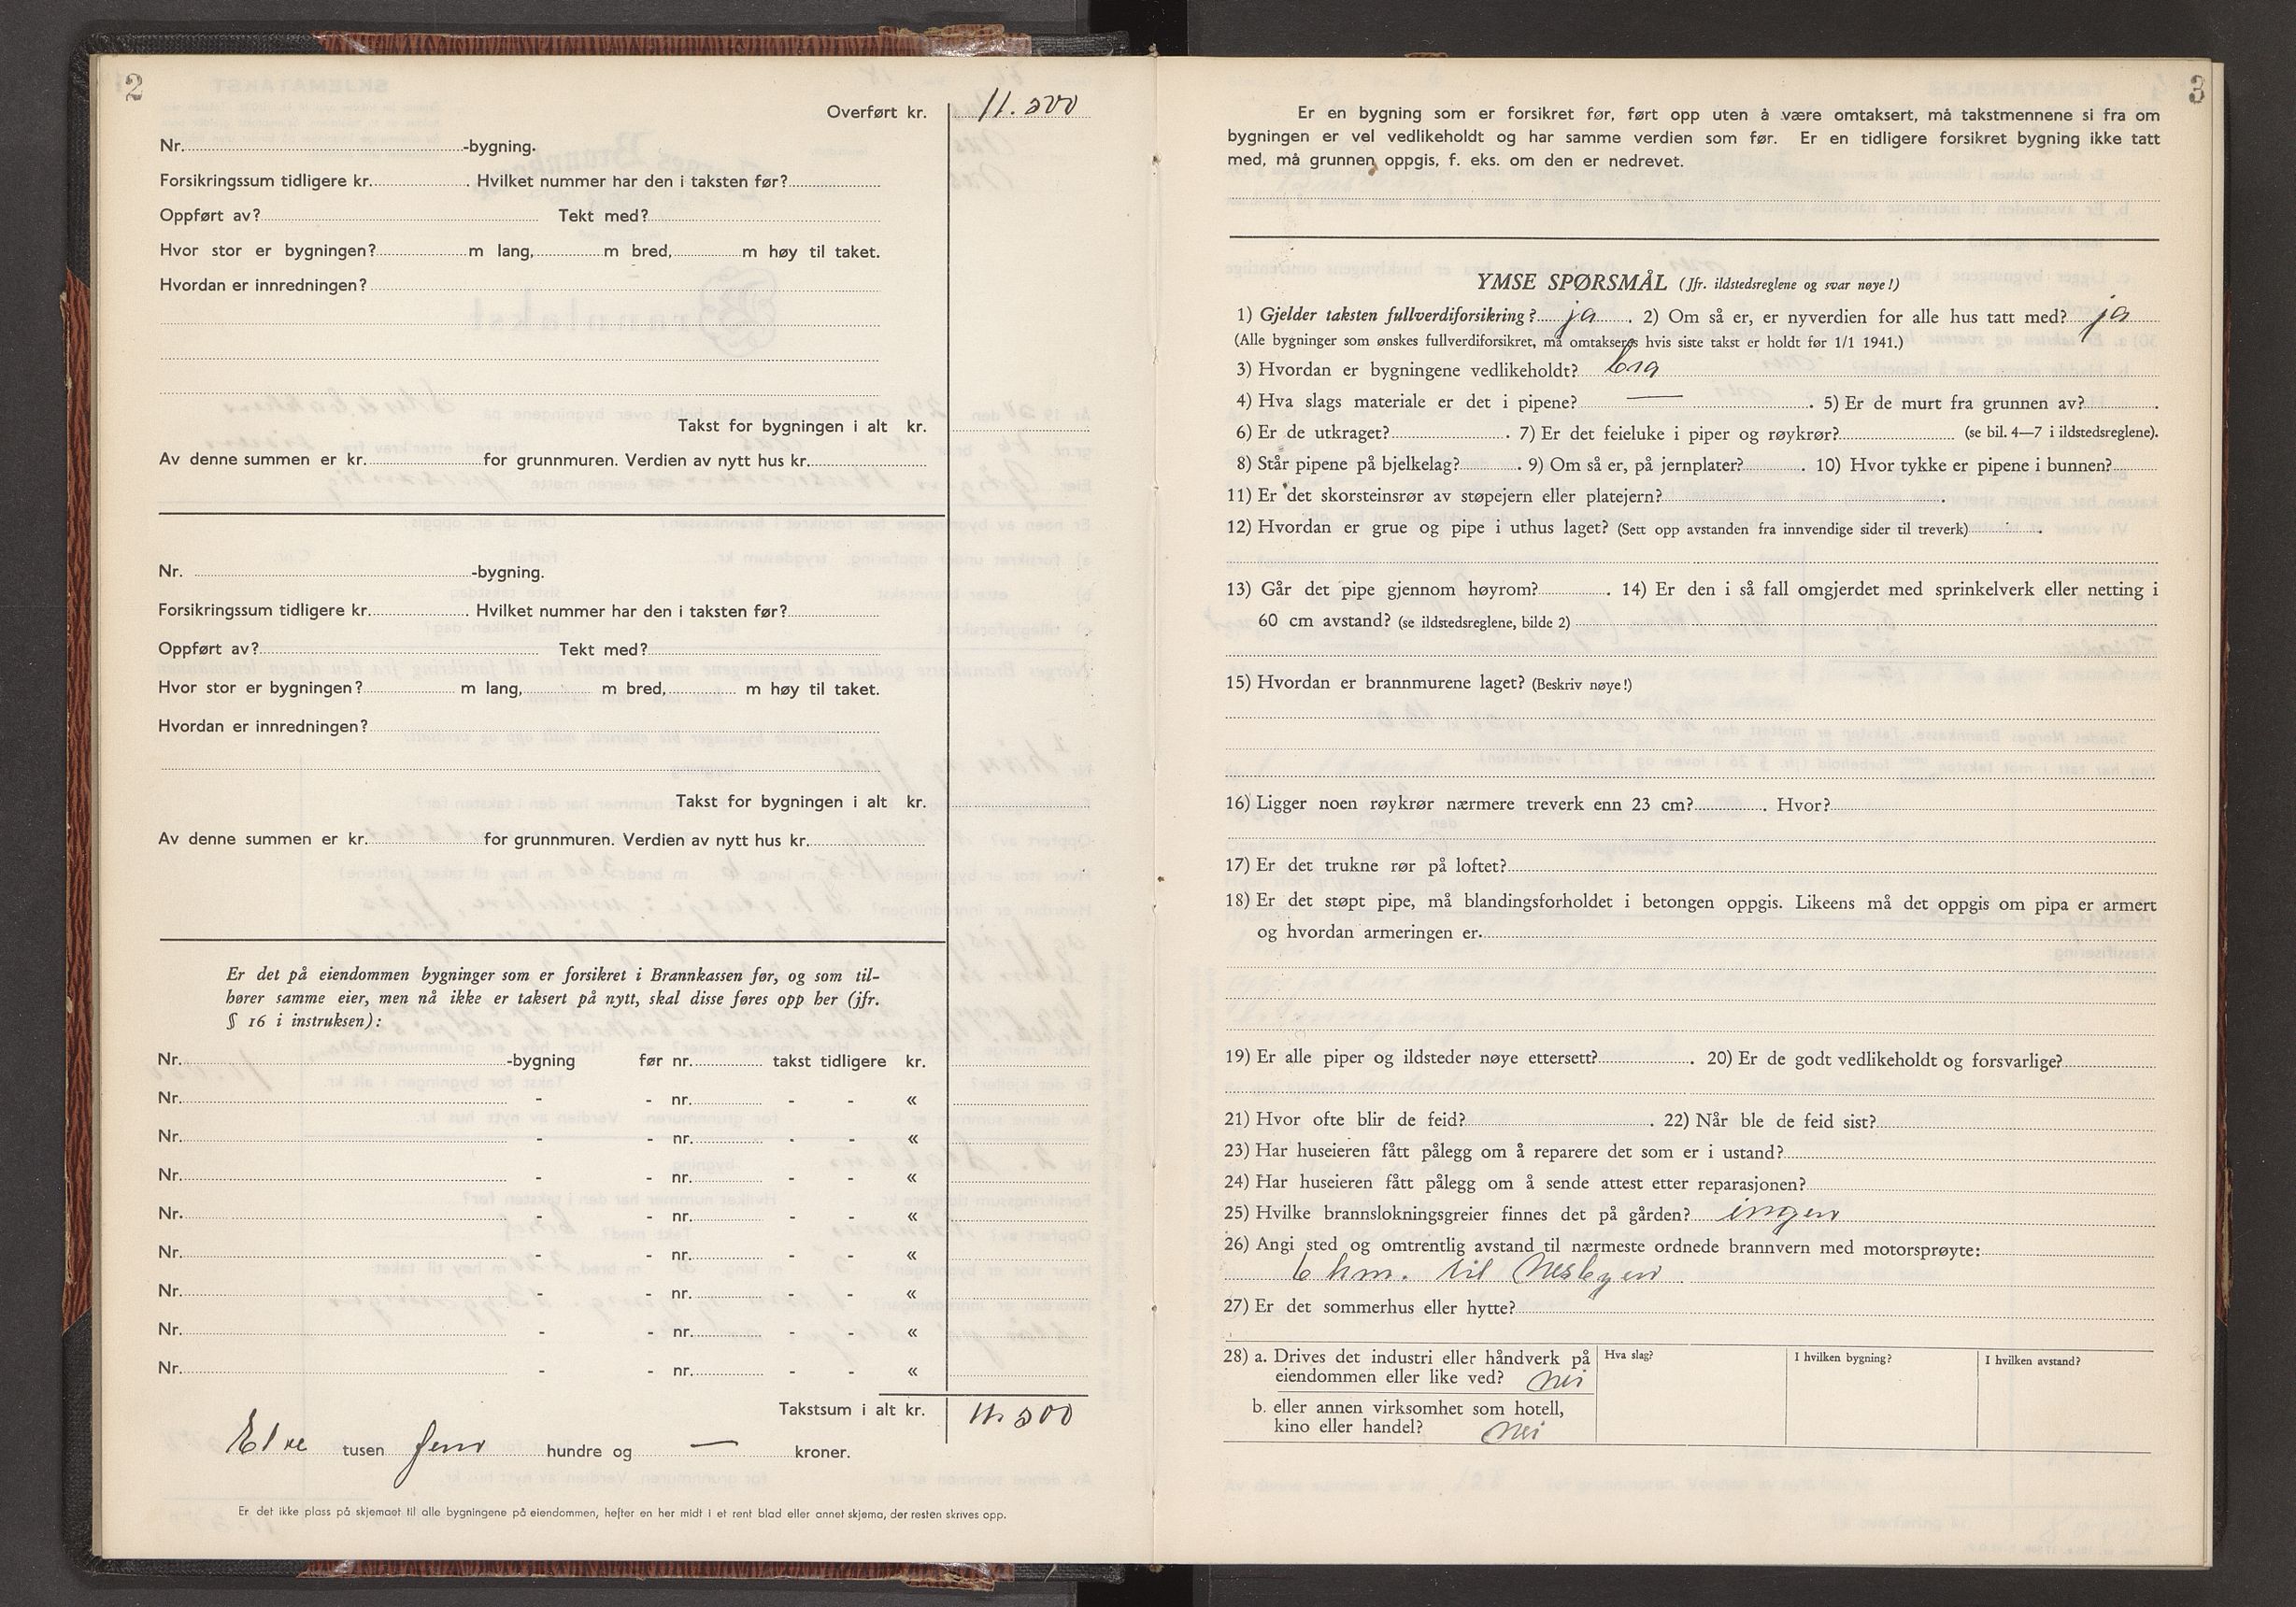 2
Overført kr. 11.500
Nr. -bygning.
Forsikringssum tidligere kr. . Hvilket nummer har den i taksten før?
Oppført av? Tekt med?
Hvor stor er bygningen? m lang, m bred, m høy til taket.
Hvordan er innredningen?
Takst for bygningen i alt kr.
Av denne summen er kr. for grunnmuren. Verdien av nytt hus kr.
Nr. -bygning.
Forsikringssum tidligere kr. . Hvilket nummer har den i taksten før?
Oppført av? Tekt med?
Hvor stor er bygningen? m lang, m bred, m høy til taket.
Hvordan er innredningen?
Takst for bygningen i alt kr.
Av denne summen er kr. for grunnmuren. Verdien av nytt hus kr.
Er det på eiendommen bygninger som er forsikret i Brannkassen før, og som til-
hører samme eier, men nå ikke er taksert på nytt, skal disse føres opp her (jfr.
§ 16 i instruksen):
Nr. -bygning før nr. takst tidligere kr.
Nr. - - nr. - - «
Nr. - - nr. - - «
Nr. - - nr. - - «
Nr. - - nr. - - «
Nr. - - nr. - - «
Nr. - - nr. - - «
Nr. - - nr. - - «
Nr. - - nr. - - «
Takstsum i alt kr. 11.500
Elve tusen fem hundre og — kroner.
Er det ikke plass på skjemaet til alle bygningene på eiendommen, hefter en her midt i et rent blad eller annet skjema, der resten skrives opp.
3
Er en bygning som er forsikret før, ført opp uten å være omtaksert, må takstmennene si fra om
bygningen er vel vedlikeholdt og har samme verdien som før. Er en tidligere forsikret bygning ikke tatt
med, må grunnen oppgis, f. eks. om den er nedrevet.
YMSE SPØRSMÅL (Jfr. ildstedsreglene og svar nøye!)
1) Gjelder taksten fullverdiforsikring? ja . 2) Om så er, er nyverdien for alle hus tatt med? ja
(Alle bygninger som ønskes fullverdiforsikret, må omtakseres hvis siste takst er holdt før 1/1 1941.)
3) Hvordan er bygningene vedlikeholdt? bra
4) Hva slags materiale er det i pipene? — . 5) Er de murt fra grunnen av? .
6) Er de utkraget? . 7) Er det feieluke i piper og røykrør? (se bil. 4—7 i ildstedsreglene).
8) Står pipene på bjelkelag? . 9) Om så er, på jernplater? . 10) Hvor tykke er pipene i bunnen?
11) Er det skorsteinsrør av støpejern eller platejern? .
12) Hvordan er grue og pipe i uthus laget? (Sett opp avstanden fra innvendige sider til treverk) .
13) Går det pipe gjennom høyrom? . 14) Er den i så fall omgjerdet med sprinkelverk eller netting i
60 cm avstand? (se ildstedsreglene, bilde 2)
15) Hvordan er brannmurene laget? (Beskriv nøye!)
16) Ligger noen røykrør nærmere treverk enn 23 cm? . Hvor?
17) Er det trukne rør på loftet?
18) Er det støpt pipe, må blandingsforholdet i betongen oppgis. Likeens må det oppgis om pipa er armert
og hvordan armeringen er.
19) Er alle piper og ildsteder nøye ettersett? . 20) Er de godt vedlikeholdt og forsvarlige?
21) Hvor ofte blir de feid? . 22) Når ble de feid sist?
23) Har huseieren fått pålegg om å reparere det som er i ustand?
24) Har huseieren fått pålegg om å sende attest etter reparasjonen?
25) Hvilke brannslokningsgreier finnes det på gården? ingen
26) Angi sted og omtrentlig avstand til nærmeste ordnede brannvern med motorsprøyte:
6 km. til Nesbyen
27) Er det sommerhus eller hytte?
28) a. Drives det industri eller håndverk på
eiendommen eller like ved? nei
Hva slag?
I hvilken bygning?
I hvilken avstand?
b. eller annen virksomhet som hotell,
kino eller handel? nei